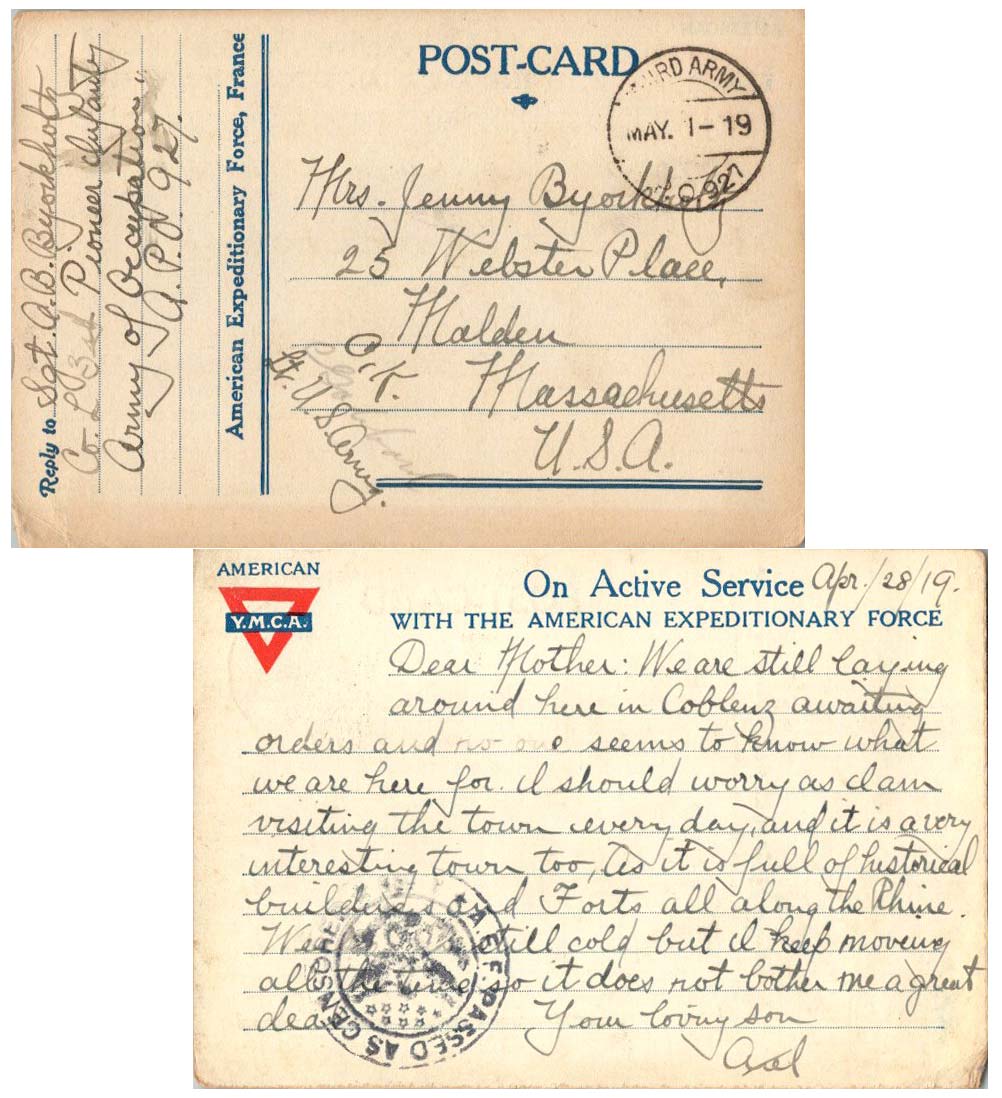 POST-CARD
THIRD ARMY
MAY. 1-19
P.O. 927
Mrs. Jenny Byorkholtz
25 Webster Place,
Malden
Massachusetts
U.S.A.
O.K.
Lt. U.S. Army.
American Expeditionary Force, France
Reply to Sgt. A.B. Byorkholtz
Co. L 3rd Pioneer Infantry
Army of Occupation"
A.P.O. 927.
AMERICAN
Y.M.C.A.
On Active Service Apr./28/19.
WITH THE AMERICAN EXPEDITIONARY FORCE
Dear Mother: We are still laying
around here in Coblenz awaiting
orders and no one seems to know what
we are here for. I should worry as I am
visiting the town every day, and it is a very
interesting town too, as it is full of historical
buildings and Forts all along the Rhine.
still cold but I keep moving
all the time so it does not bother me a great
deal Your loving son
Axel
A.E.F. PASSED AS CENSORED